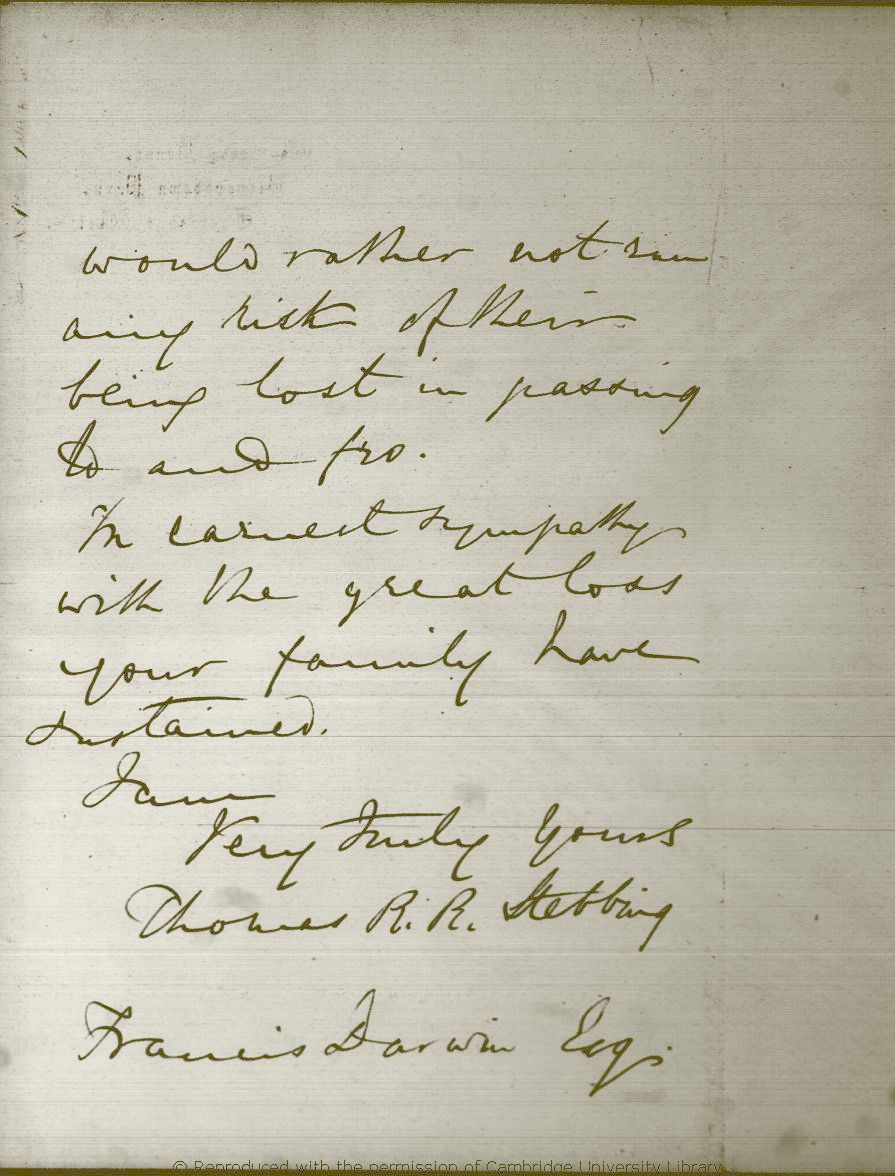 would rather not run
any risk of their
being lost in passing
to and fro.
In earnest sympathy
with the great loss
your family have
sustained.
I am
Very truly yours
Thomas R. R. Stebbing
Francis Darwin Esq.
© Reproduced with the permission of Cambridge University Library